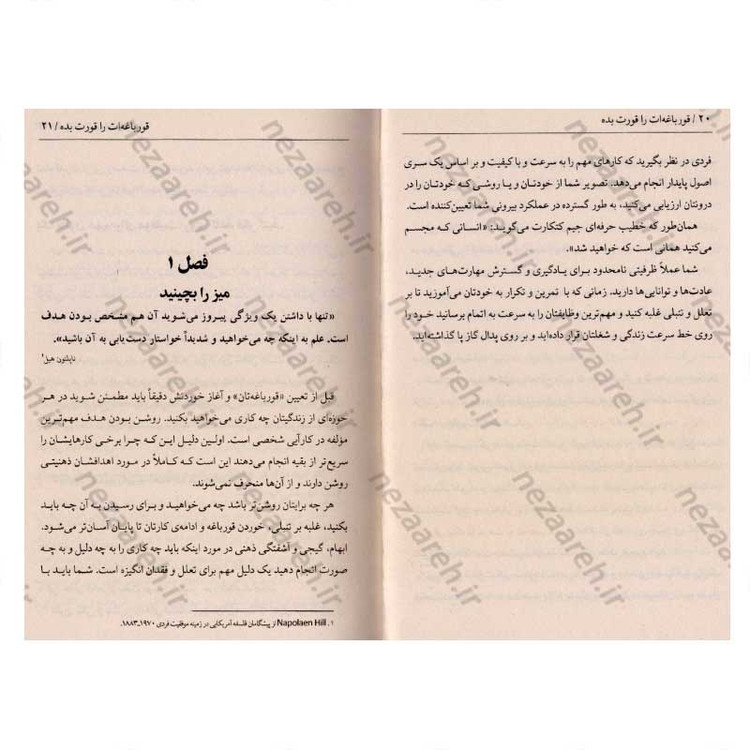 ۲۰ / قورباغه‌ات را قورت بده
فردی در نظر بگیرید که کارهای مهم را به سرعت و با کیفیت و بر اساس یک سری
اصول پایدار انجام می‌دهد. تصویر شما از خودتان و یا روشی که خودتان را در
درونتان ارزیابی می‌کنید، به طور گسترده در عملکرد بیرونی شما تعیین‌کننده است.
همان‌طور که خطیب حرفه‌ای جیم کتکارت می‌گوید: «انسانی که مجسم
می‌کنید همانی است که خواهید شد».
شما عملاً ظرفیتی نامحدود برای یادگیری و گسترش مهارت‌های جدید،
عادت‌ها و توانایی‌ها دارید. زمانی که با تمرین و تکرار به خودتان می‌آموزید تا بر
تعلل و تنبلی غلبه کنید و مهم‌ترین وظایفتان را به سرعت به اتمام برسانید خود را
روی خط سرعت زندگی و شغلتان قرار داده‌اید و بر روی پدال گاز پا گذاشته‌اید.
قورباغه‌ات را قورت بده / ۲۱
فصل ۱
میز را بچینید
«تنها با داشتن یک ویژگی پیروز می‌شوید آن هم مشخص بودن هدف
است. علم به اینکه چه می‌خواهید و شدیداً خواستار دست‌یابی به آن باشید».
ناپلئون هیل¹
قبل از تعیین «قورباغه‌تان» و آغاز خوردنش دقیقاً باید مطمئن شوید در هر
حوزه‌ای از زندگیتان چه کاری می‌خواهید بکنید. روشن بودن هدف مهم‌ترین
مؤلفه در کارآیی شخصی است. اولین دلیل این که چرا برخی کارهایشان را
سریع‌تر از بقیه انجام می‌دهند این است که کاملاً در مورد اهدافشان ذهنیتی
روشن دارند و از آن‌ها منحرف نمی‌شوند.
هر چه برایتان روشن‌تر باشد چه می‌خواهید و برای رسیدن به آن چه باید
بکنید، غلبه بر تنبلی، خوردن قورباغه و ادامه‌ی کارتان تا پایان آسان‌تر می‌شود.
ابهام، گیجی و آشفتگی ذهنی در مورد اینکه باید چه کاری را به چه دلیل و به چه
صورت انجام دهید یک دلیل مهم برای تعلل و فقدان انگیزه است. شما باید با
۱ . Napolaen Hill از پیشگامان فلسفه آمریکایی در زمینه موفقیت فردی ۱۹۷۰ـ۱۸۸۳.
nezaareh.ir